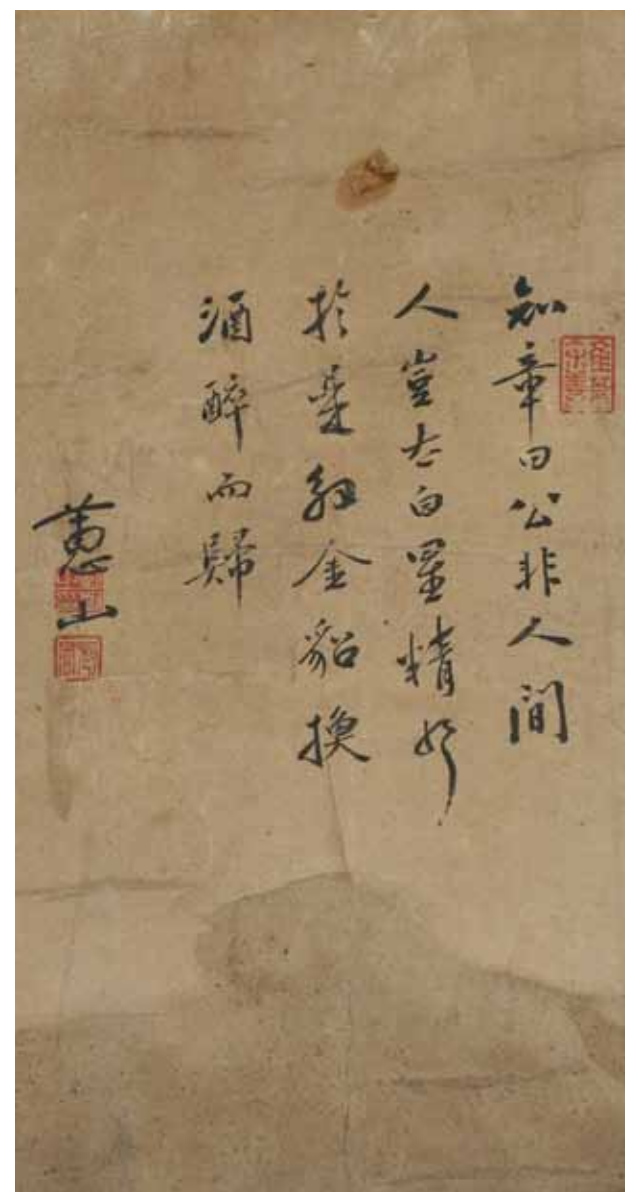 知章曰公非人間
人豈太白星精耶
於是解金貂換
酒醉而歸
蕙山